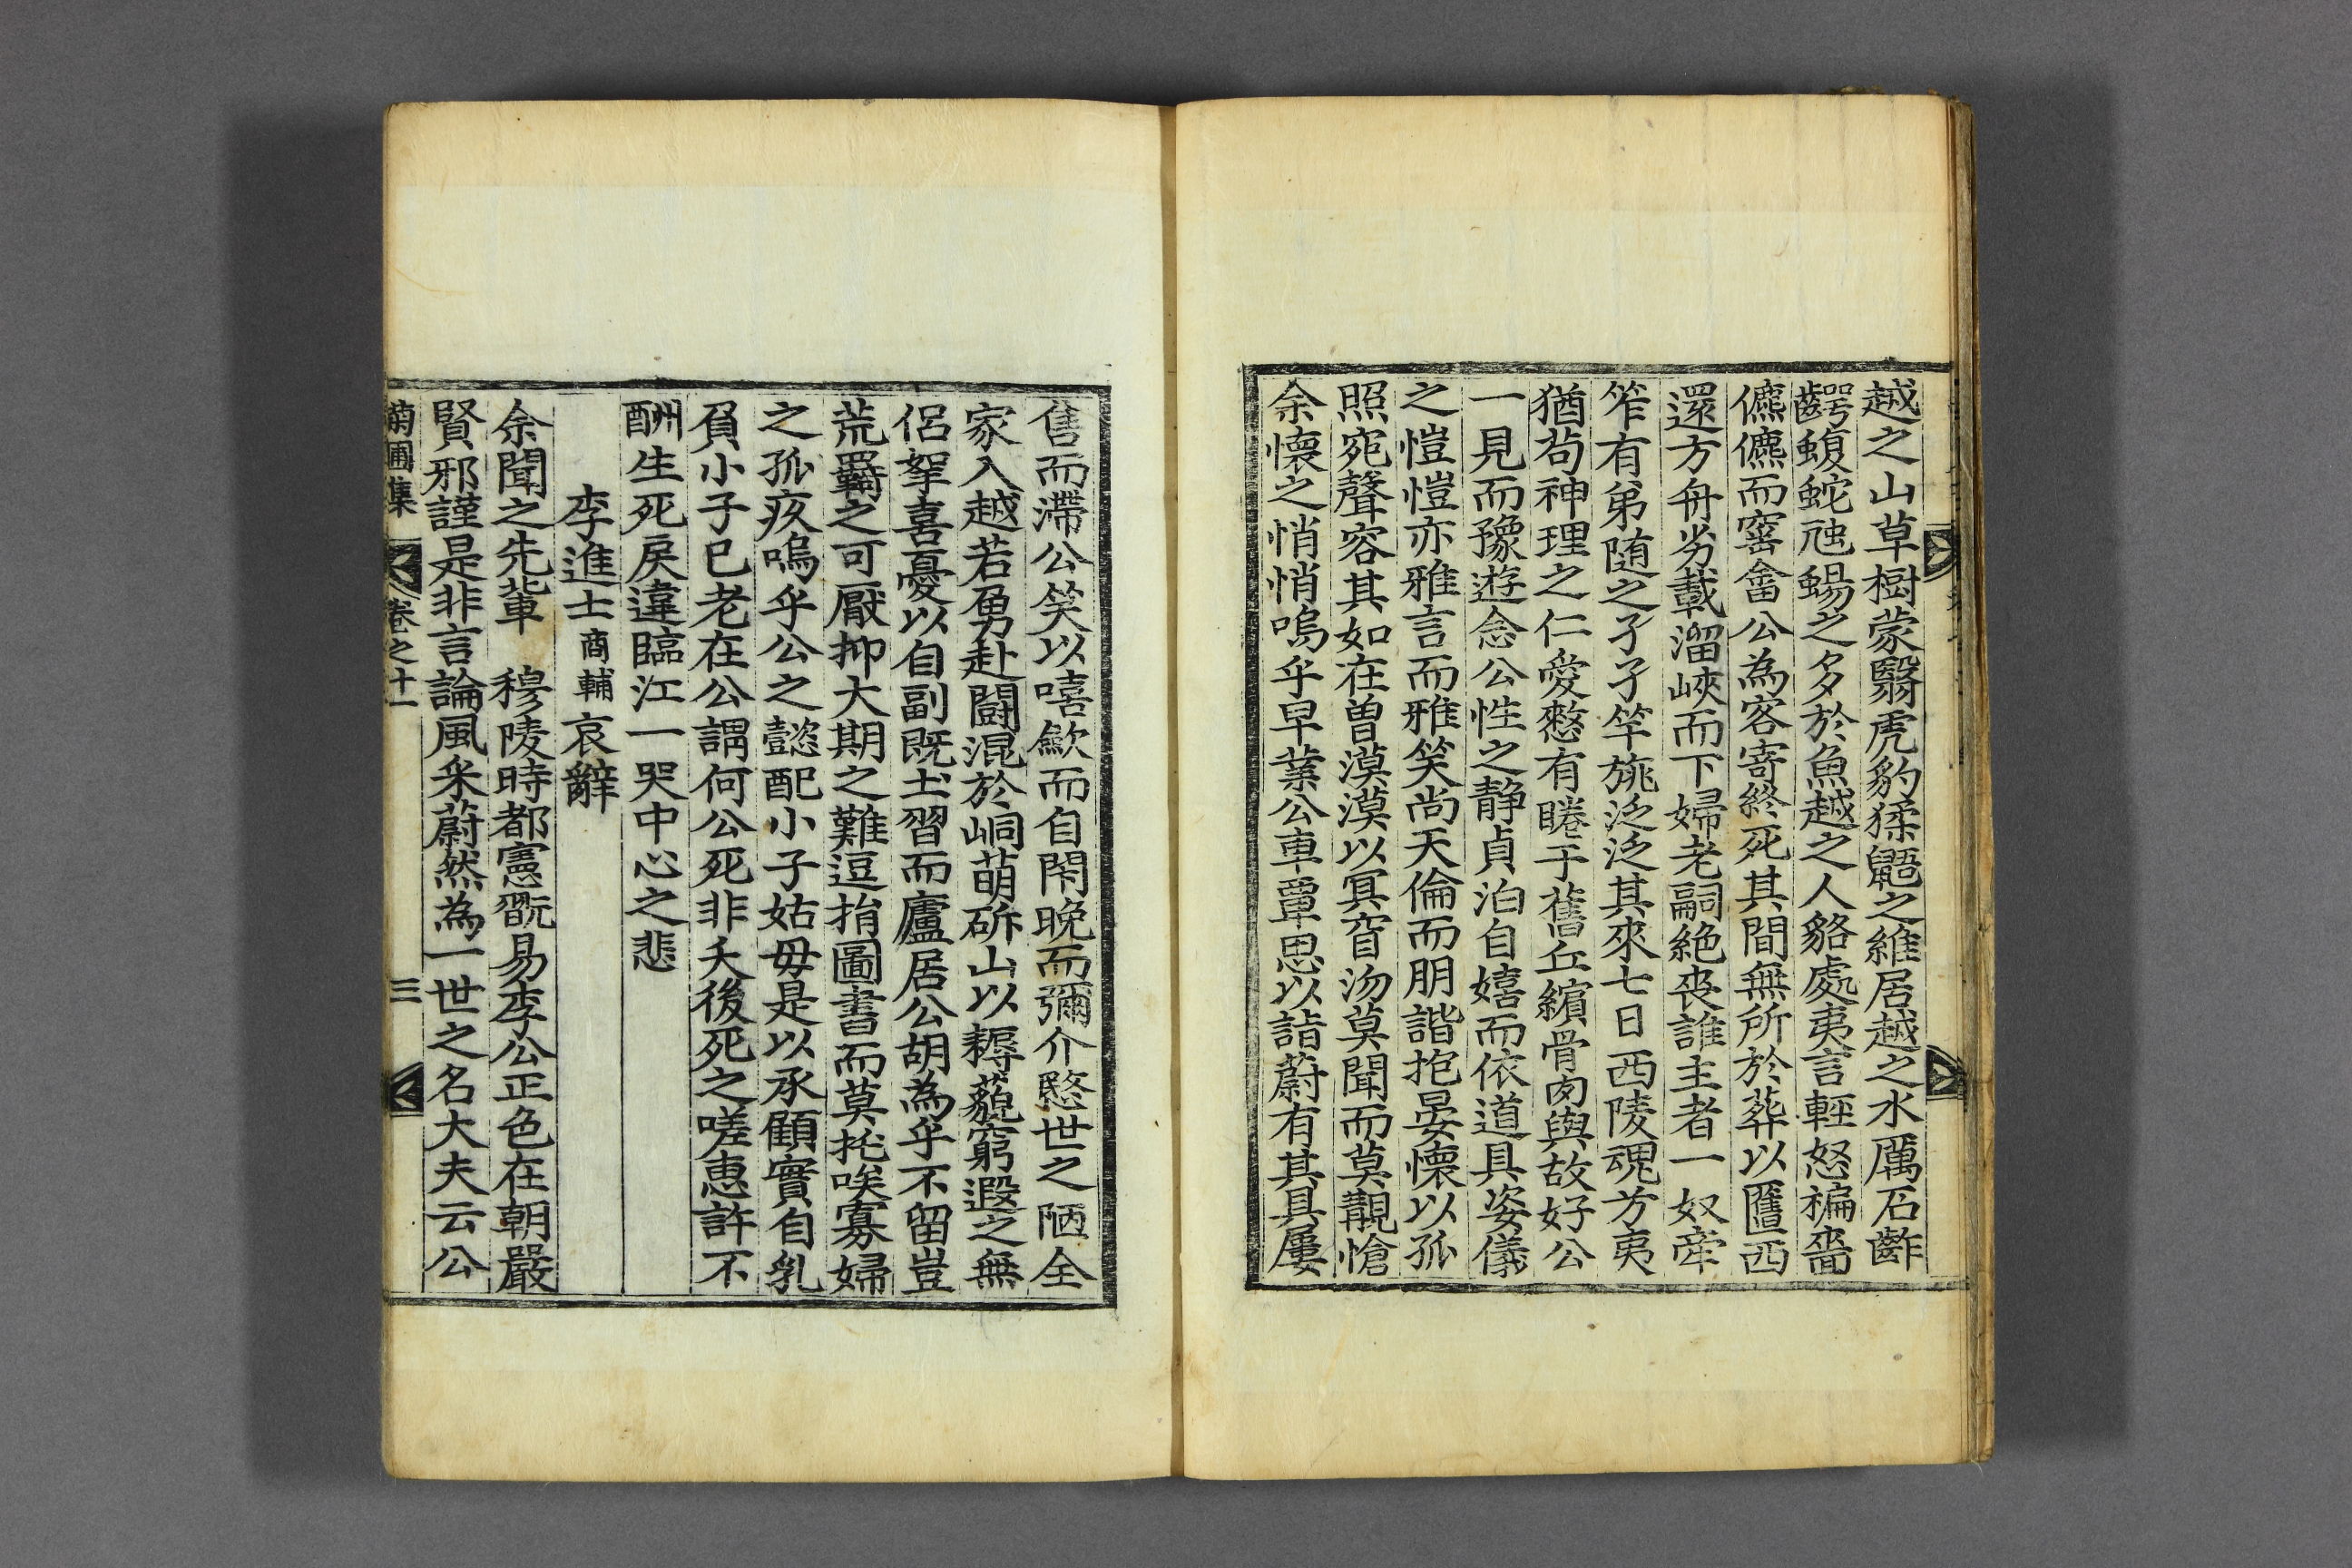 越之山草樹蒙翳虎豹猱鼯之維居越之水厲石齚
齶蝮蛇虺蜴之多於魚越之人貉處夷言輕怒褊嗇
儦儦而窰畬公為客寄終死其間無所於葬以匶西
還方舟劣載溜峽而下婦老嗣絶丧誰主者一奴牽
筰有弟随之孑孑竿旐泛泛其來七日西陵魂方夷
猶芶神理之仁愛憗有睠于舊丘縯骨肉與故好公
一見而豫遊念公性之静貞泊自嬉而依道具姿儀
之愷愷亦雅言而雅笑尚天倫而朋諧抱晏懷以孤
照宛聲容其如在曾漠漠以冥窅沕莫聞而莫覯愴
余懷之悄悄嗚乎早業公車覃思以詣蔚有其具屢
售而滯公笑以嘻歛而自閑晚而彌介愍世之陋全
家入越若勇赴闘混於峒萌斫山以耨藐窮遐之無
侣挐喜憂以自副既土習而廬居公胡為乎不留豈
荒羇之可厭抑大期之難逗捐圖書而莫托唉寡婦
之孤疚嗚乎公之懿配小子姑毋是以承顧實自乳
負小子已老在公謂何公死非夭後死之嗟惠許不
酬生死戾違臨江一哭中心之悲
李進士商輔哀辭
余聞之先輩　穆陵時都憲翫易李公正色在朝嚴
賢邪謹是非言論風采蔚然為一世之名大夫云公
菊圃集　卷之十一　三